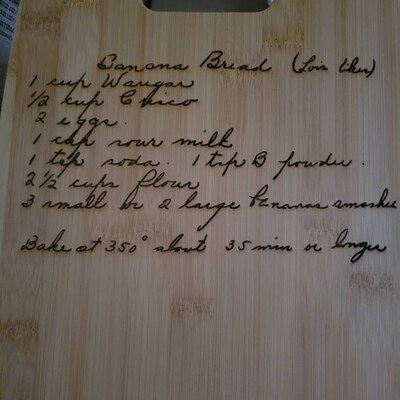 Banana Bread (Lois likes)
1 cup Wsugar
1/2 cup Crisco
2 eggs.
1 cup sour milk
1 tsp soda. 1 tsp B powder.
2 1/2 cups flour
3 small or 2 large bananas smashed
Bake at 350° about 35 min or longer